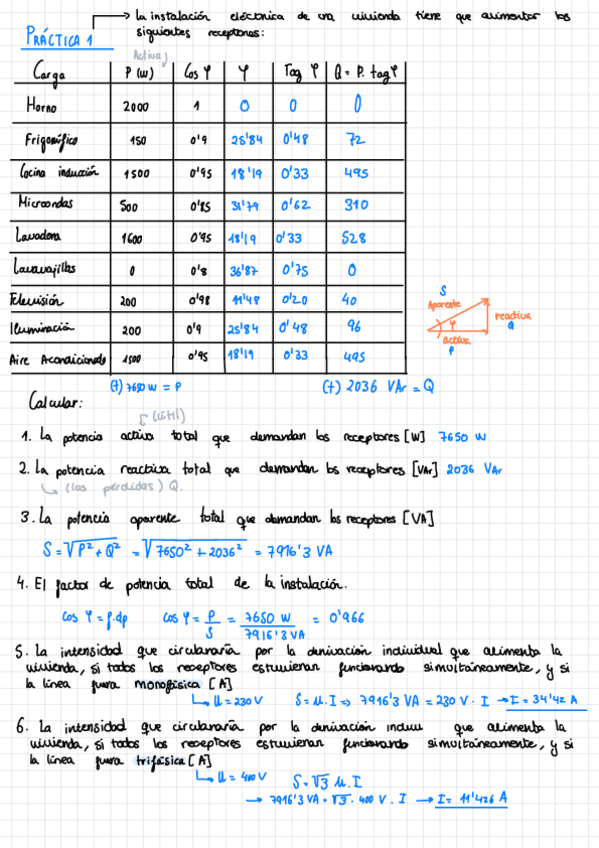 la instalación eléctrica de una vivienda tiene que alimentar los
PRÁCTICA 1 siguientes receptores:
Activa
Carga P (W) Cos φ φ Tag φ Q = P. tag φ
Horno 2000 1 0 0 0
Frigorífico 150 0'9 25'84 0'48 72
Cocina inducción 1500 0'95 18'19 0'33 495
Microondas 500 0'85 31'79 0'62 310
Lavadora 1600 0'95 18'19 0'33 528
Lavavajillas 0 0'8 36'87 0'75 0
Televisión 200 0'98 11'48 0'20 40
Iluminación 200 0'9 25'84 0'48 96
Aire Acondicionado 1500 0'95 18'19 0'33 495
S
Aparente
reactiva
Q
φ
activa
P
(+) 7650 W = P (+) 2036 VAr = Q
Calcular:
(útil)
1. La potencia activa total que demandan los receptores [W] 7650 W
2. La potencia reactiva total que demandan los receptores [VAr] 2036 VAr
(las pérdidas) Q.
3. La potencia aparente total que demandan los receptores [VA]
S = √P² + Q² = √7650² + 2036² = 7916'3 VA
4. El factor de potencia total de la instalación.
Cos φ = f.dp Cos φ = P/S = 7650 W / 7916'3 VA = 0'966
5. La intensidad que circularía por la derivación individual que alimenta la
vivienda, si todos los receptores estuvieran funcionando simultáneamente, y si
la línea fuera monofásica [A]
U = 230 V S = U. I ⇒ 7916'3 VA = 230 V · I → I = 34'42 A
6. La intensidad que circularía por la derivación indivi que alimenta la
vivienda, si todos los receptores estuvieran funcionando simultáneamente, y si
la línea fuera trifásica [A]
U = 400 V S = √3 U. I
→ 7916'3 VA = √3 · 400 V . I → I = 11'426 A